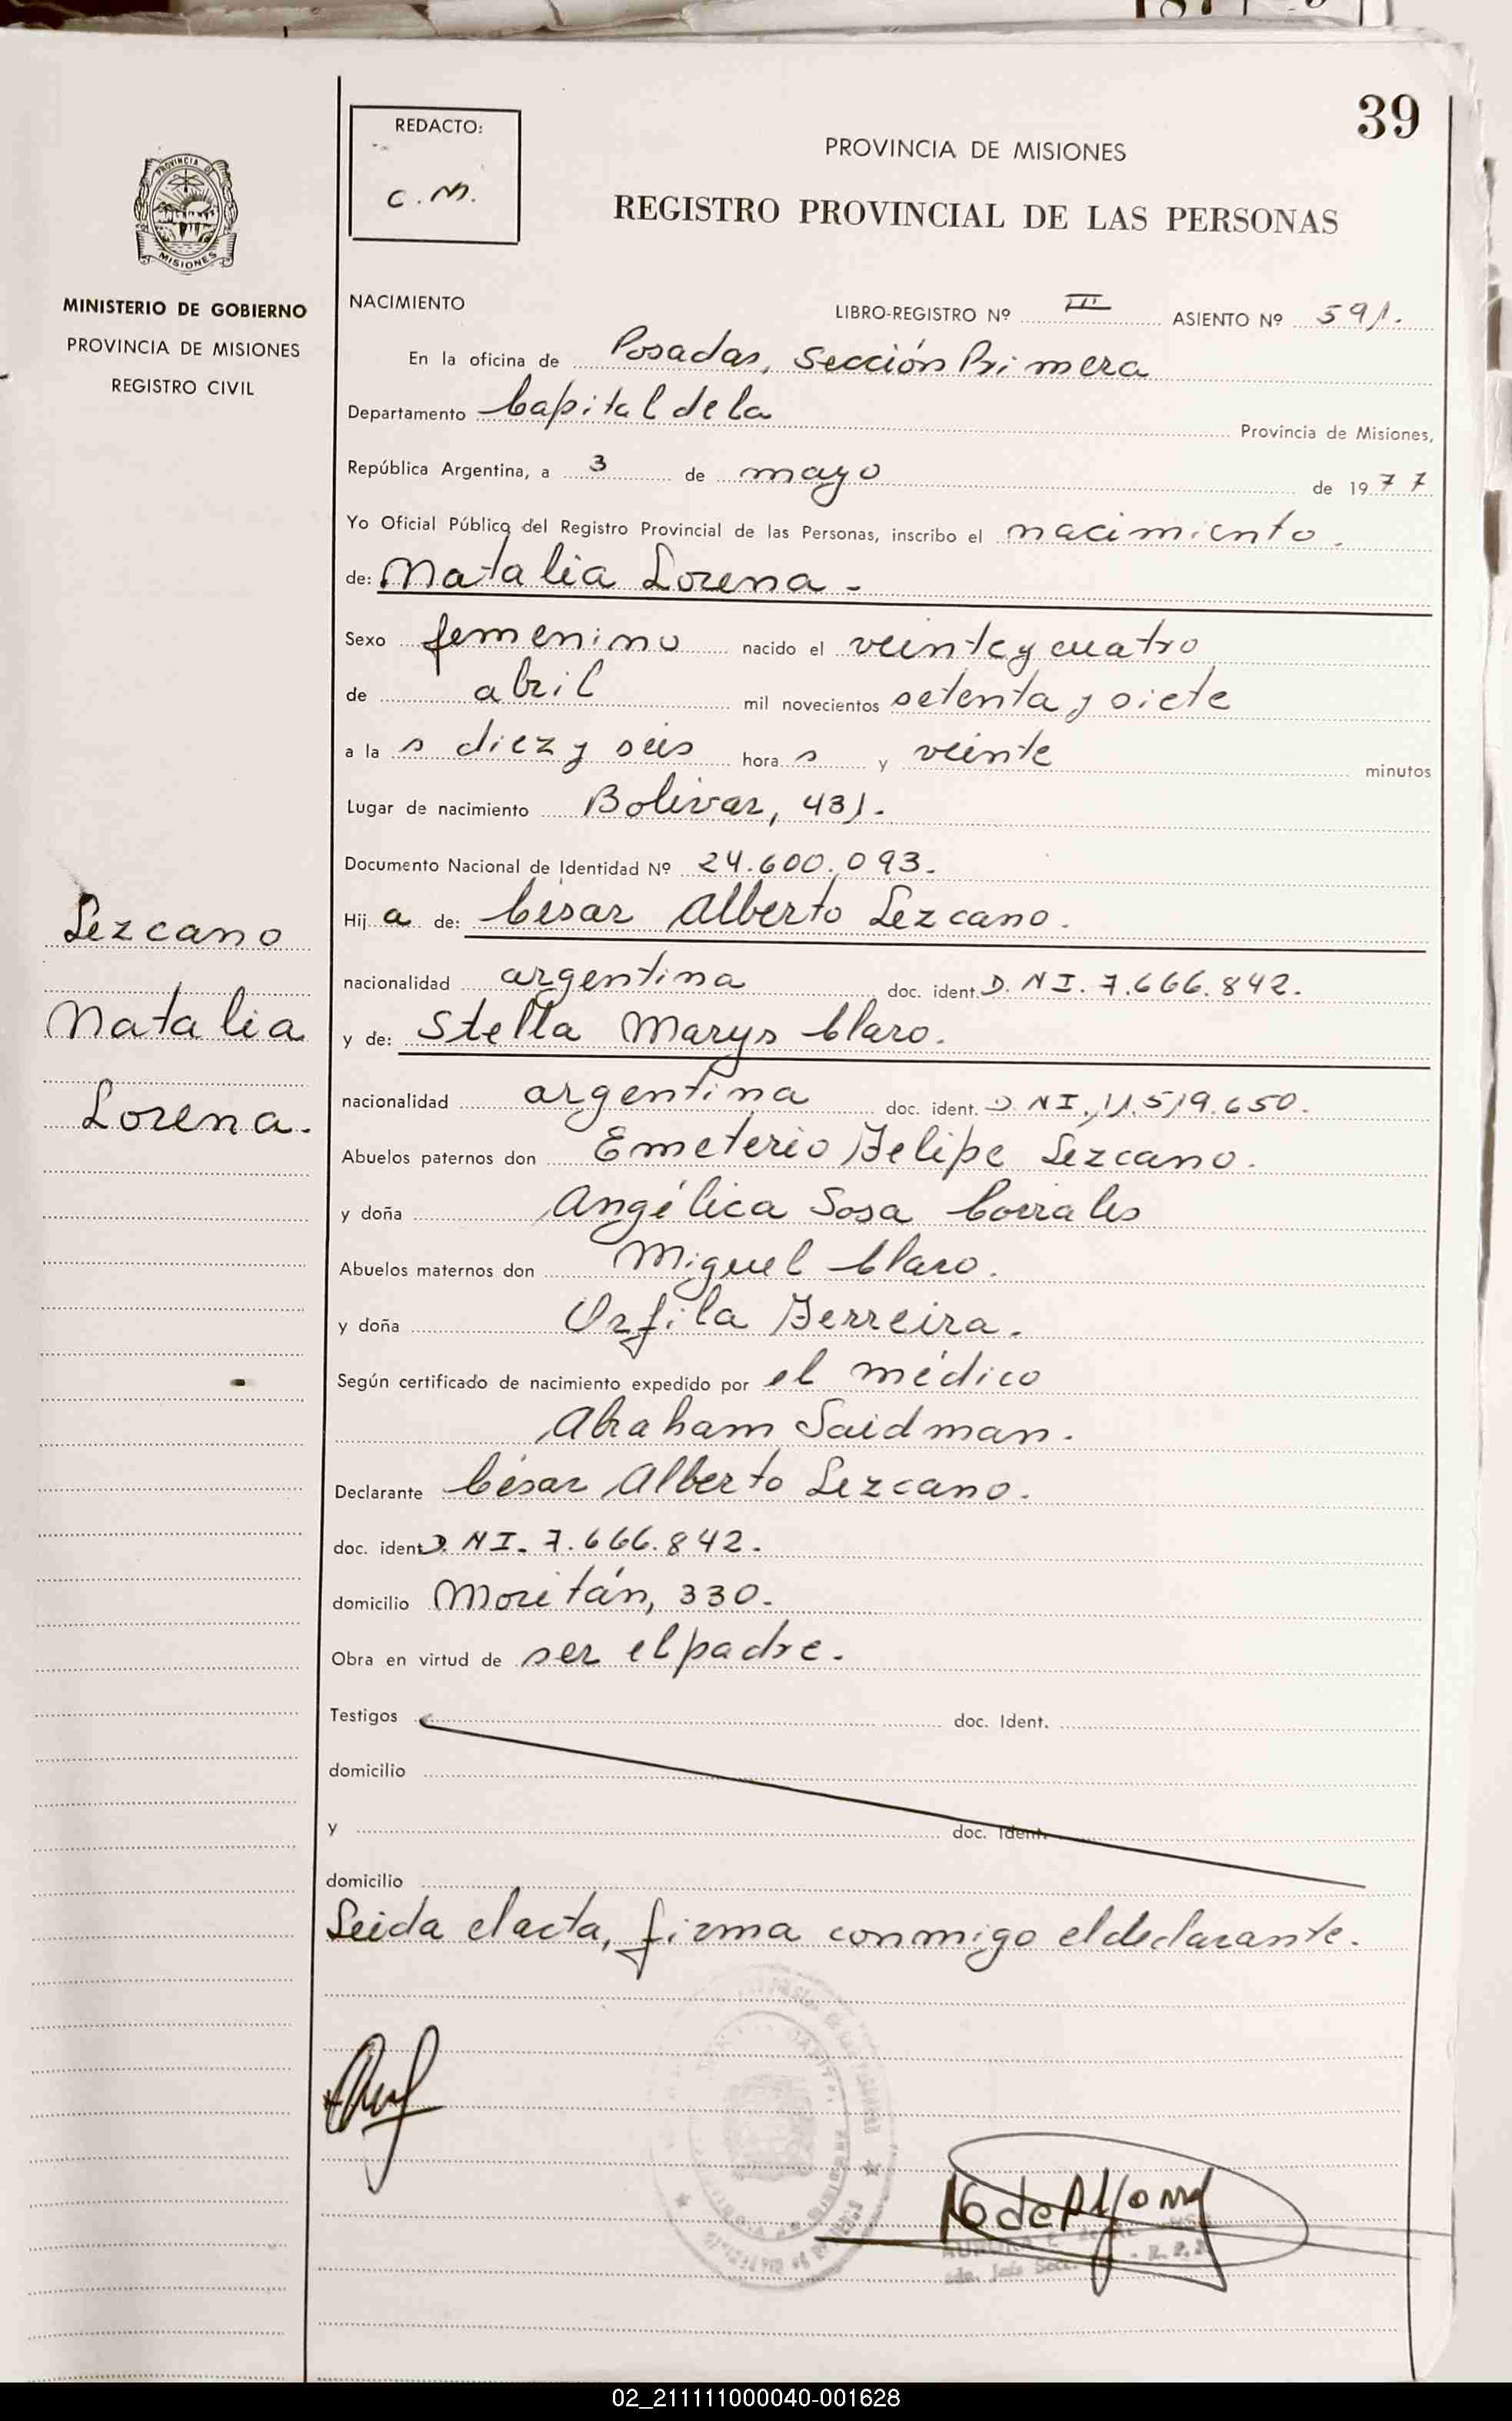 39
REDACTO:
C.M.
PROVINCIA DE MISIONES
REGISTRO PROVINCIAL DE LAS PERSONAS
PROVINCIA DE
MISIONES
MINISTERIO DE GOBIERNO
PROVINCIA DE MISIONES
REGISTRO CIVIL
NACIMIENTO LIBRO-REGISTRO Nº III ASIENTO Nº 591.
En la oficina de Posadas, Sección Primera
Departamento Capital de la Provincia de Misiones,
República Argentina, a 3 de mayo de 1977
Yo Oficial Público del Registro Provincial de las Personas, inscribo el nacimiento.
de: Natalia Lorena -
Sexo femenino nacido el veinte y cuatro
de abril mil novecientos setenta y siete
a la s diez y seis hora s y veinte minutos
Lugar de nacimiento Bolivar, 431.
Documento Nacional de Identidad Nº 24.600.093.
Hij a de: César Alberto Lezcano.
nacionalidad argentina doc. ident. D.NI. 7.666.842.
y de: Stella Marys Claro.
nacionalidad argentina doc. ident. D.NI. 11.519.650.
Abuelos paternos don Emeterio Felipe Lezcano.
y doña Angélica Sosa Corrales
Abuelos maternos don Miguel Claro.
y doña Orfila Ferreira.
Según certificado de nacimiento expedido por el médico
Abraham Saidman.
Declarante César Alberto Lezcano.
doc. ident D.NI. 7.666.842.
domicilio Moritán, 330.
Obra en virtud de ser el padre.
Testigos doc. Ident.
domicilio
y doc. Ident.
domicilio
Leida el acta, firma conmigo el declarante.
Lezcano
Natalia
Lorena.
02_211111000040-001628